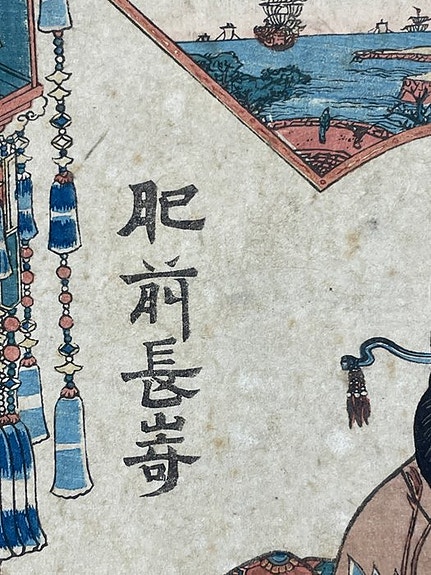 肥前長嵜